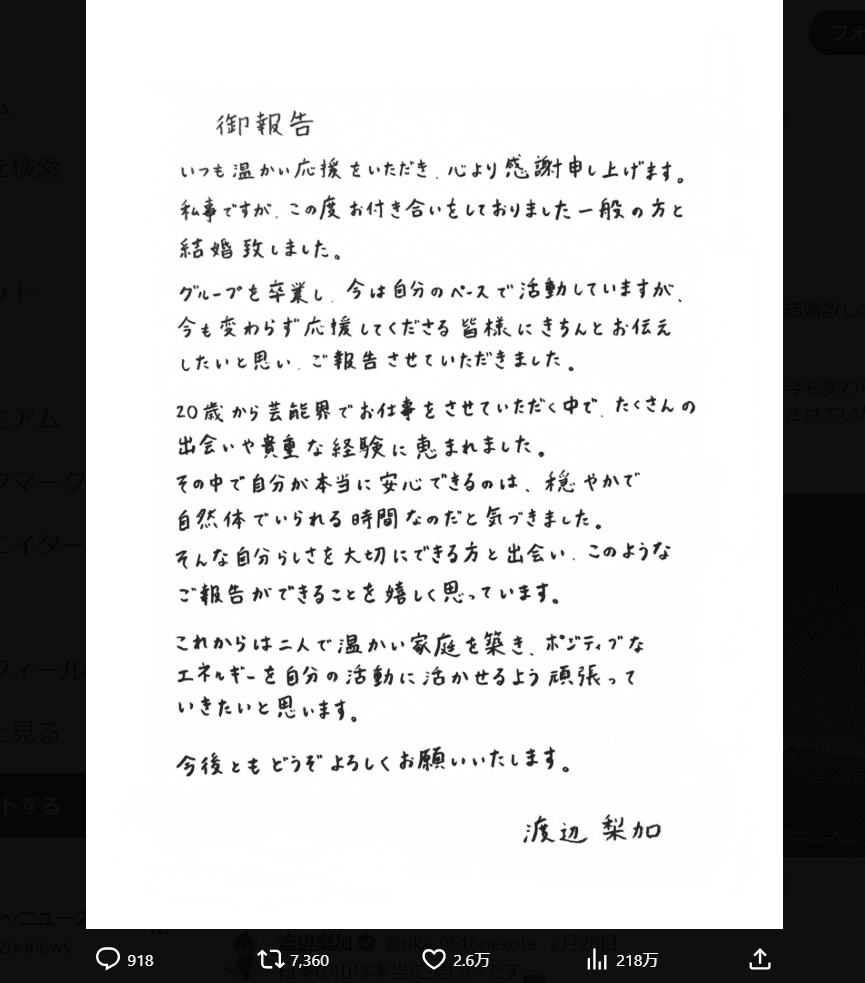 御報告
いつも温かい応援をいただき、心より感謝申し上げます。
私事ですが、この度お付き合いをしておりました一般の方と
結婚致しました。
グループを卒業し、今は自分のペースで活動していますが、
今も変わらず応援してくださる皆様にきちんとお伝え
したいと思い、ご報告させていただきました。
20歳から芸能界でお仕事をさせていただく中で、たくさんの
出会いや貴重な経験に恵まれました。
その中で自分が本当に安心できるのは、穏やかで
自然体でいられる時間なのだと気づきました。
そんな自分らしさを大切にできる方と出会い、このような
ご報告ができることを嬉しく思っています。
これからは二人で温かい家庭を築き、ポジティブな
エネルギーを自分の活動に活かせるよう頑張って
いきたいと思います。
今後ともどうぞよろしくお願いいたします。
渡辺 梨加
フォ
を検索
ット
ミアム
クマーク
エイター
フィール
と見る
トする
結婚致し
今も変わ
させてい
〜ニュース
zoonews
渡辺梨加 @rika_0516nekota · 2月28日
日本の山は本当に美しいです
918 7,360 2.6万 218万